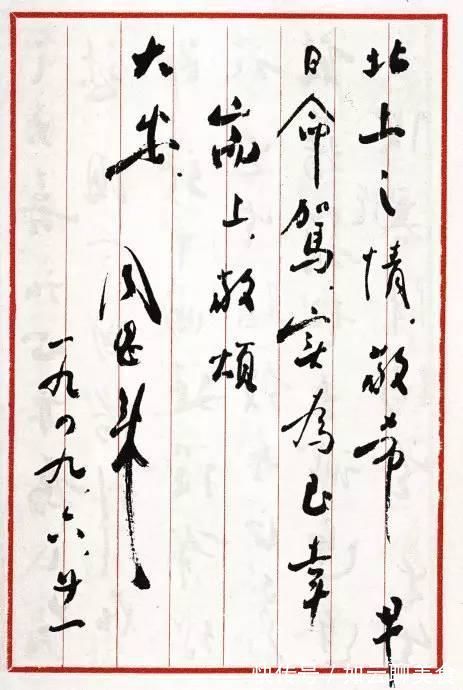 北上之情、敬希 早
日命駕、实為至幸
耑上、敬頌
大安.
周恩来
一九四九、六、廿一